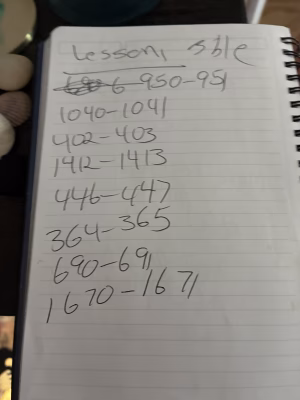 Lesson, sble
6 950-951
1040-1041
402-403
1412-1413
446-447
364-365
690-691
1670-1671